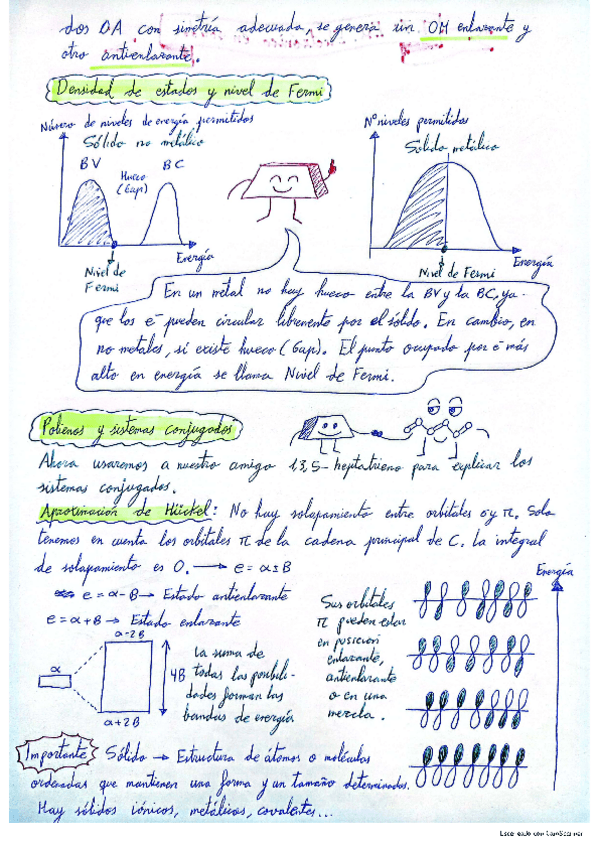 dos OA con simetría adecuada, se genera un OM enlazante y
otro antienlazante.
Densidad de estados y nivel de Fermi
Número de niveles de energía permitidos
Sólido no metálico
BV
Hueco
(Gap)
BC
Energía
Nivel de
Fermi
Nº niveles permitidos
Sólido metálico
Energía
Nivel de Fermi
En un metal no hay hueco entre la BV y la BC, ya
que los e- pueden circular libremente por el sólido. En cambio, en
no metales, sí existe hueco (Gap). El punto ocupado por e- más
alto en energía se llama Nivel de Fermi.
Polienos y sistemas conjugados
Ahora usaremos a nuestro amigo 1,3,5-heptatrieno para explicar los
sistemas conjugados.
Aproximación de Hückel: No hay solapamiento entre orbitales σ y π. Solo
tenemos en cuenta los orbitales π de la cadena principal de C. La integral
de solapamiento es 0. → e = α ± B
e = α - B → Estado antienlazante
e = α + B → Estado enlazante
α
α-2B
α+2B
4B
La suma de
todas las posibili-
dades forman las
bandas de energía
Sus orbitales
π pueden estar
en posición
enlazante,
antienlazante
o en una
mezcla.
Energía
Importante Sólido → Estructura de átomos o moléculas
ordenadas que mantienen una forma y un tamaño determinados.
Hay sólidos iónicos, metálicos, covalentes...
Escaneado con CamScanner